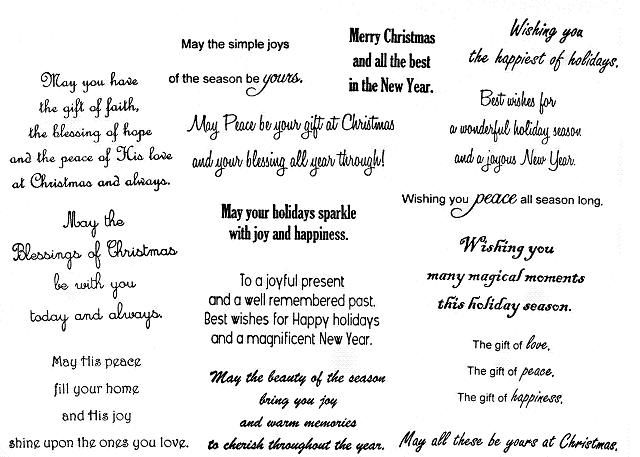 May the simple joys
of the season be yours.
Merry Christmas
and all the best
in the New Year.
Wishing you
the happiest of holidays.
May you have
the gift of faith,
the blessing of hope
and the peace of His love
at Christmas and always.
May Peace be your gift at Christmas
and your blessing all year through!
Best wishes for
a wonderful holiday season
and a joyous New Year.
Wishing you peace all season long.
May the
Blessings of Christmas
be with you
today and always.
May your holidays sparkle
with joy and happiness.
Wishing you
many magical moments
this holiday season.
To a joyful present
and a well remembered past.
Best wishes for Happy holidays
and a magnificent New Year.
The gift of love,
The gift of peace,
The gift of happiness,
May all these be yours at Christmas.
May His peace
fill your home
and His joy
shine upon the ones you love.
May the beauty of the season
bring you joy
and warm memories
to cherish throughout the year.